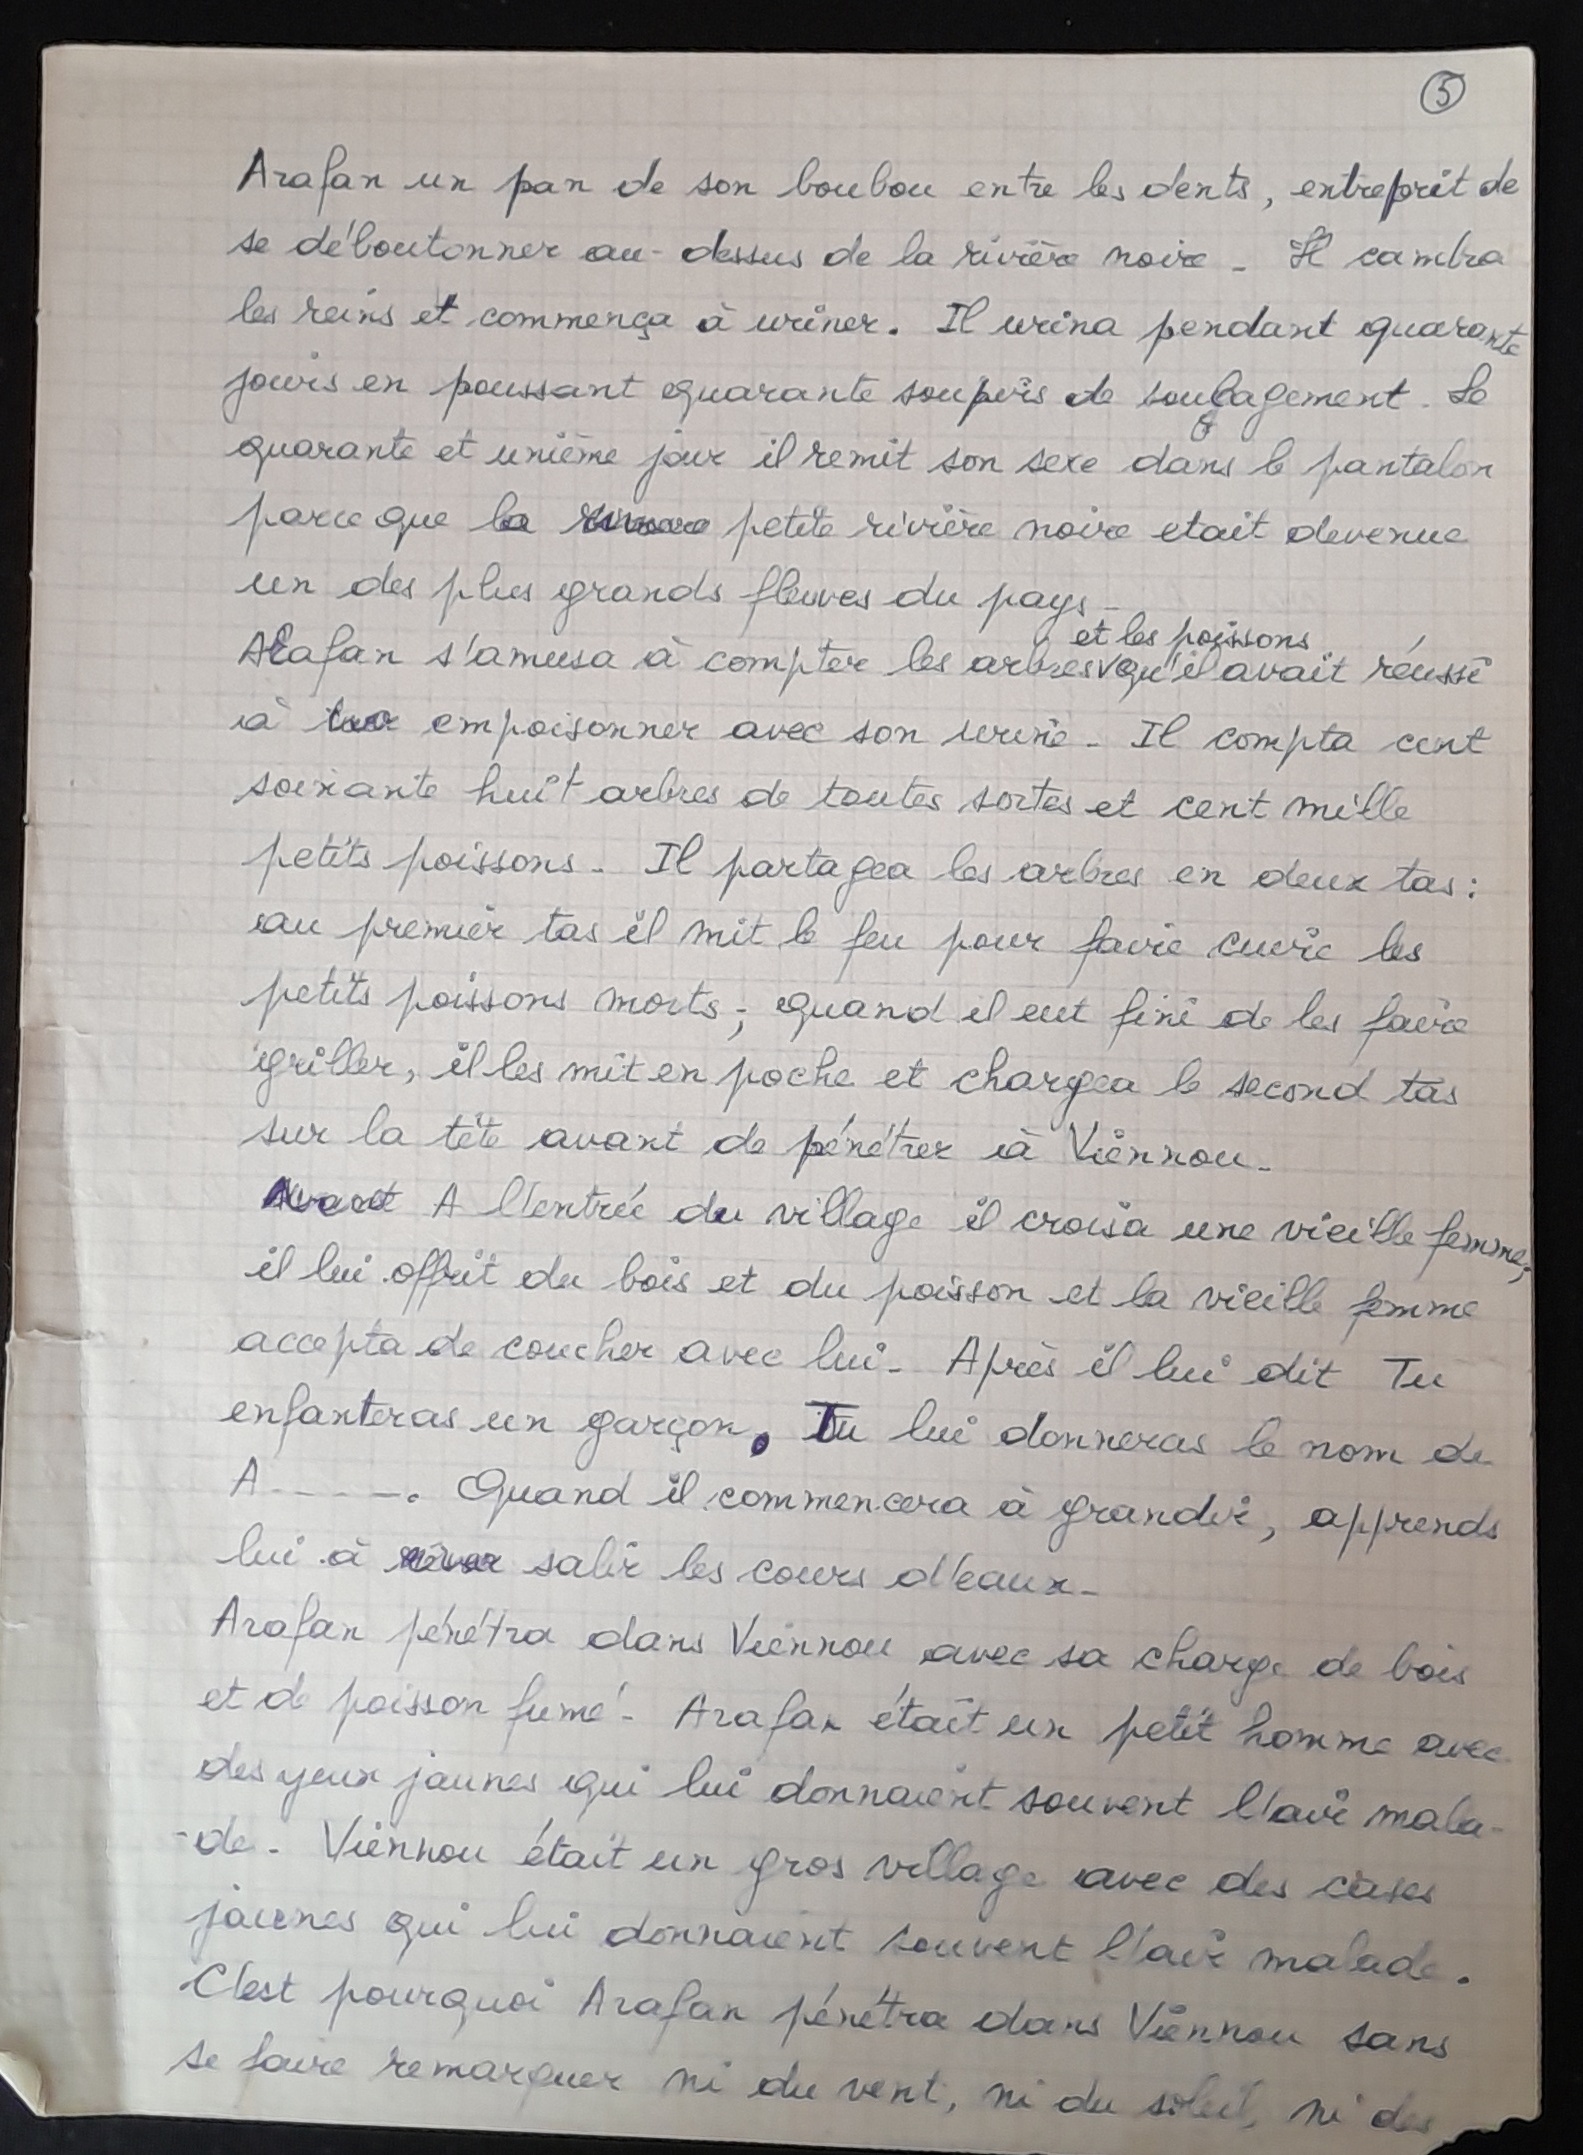 5
Arafan un pan de son boubou entre les dents, entreprit de
se déboutonner au-dessus de la rivière noire - Il cambra
les reins et commença à uriner. Il urina pendant quarante
jours en poussant quarante soupirs de soulagement - Le
quarante et unième jour il remit son sexe dans le pantalon
parce que la petite rivière noire etait devenue
un des plus grands fleuves du pays -
et les poissons
Arafan s'amusa à compter les arbres qu'il avait réussi
à empoisonner avec son urine - Il compta cent
soixante huit arbres de toutes sortes et cent mille
petits poissons - Il partagea les arbres en deux tas :
au premier tas il mit le feu pour faire cuire les
petits poissons morts ; quand il eut fini de les faire
griller, il les mit en poche et chargea le second tas
sur la tête avant de pénétrer à Viênnou -
Avant A l'entrée du village il croisa une vieille femme,
il lui offrit du bois et du poisson et la vieille femme
accepta de coucher avec lui - Après il lui dit Tu
enfanteras un garçon. Tu lui donneras le nom de
A - - - - . Quand il commencera à grandir, apprends
lui à salir les cours d'eaux -
Arafan pénétra dans Viênnou avec sa charge de bois
et de poisson fumé - Arafan était un petit homme avec
des yeux jaunes qui lui donnaient souvent l'air mala-
-de - Viênnou était un gros village avec des cases
jaunes qui lui donnaient souvent l'air malade.
C'est pourquoi Arafan pénétra dans Viênnou sans
se faire remarquer ni du vent, ni du soleil, ni des